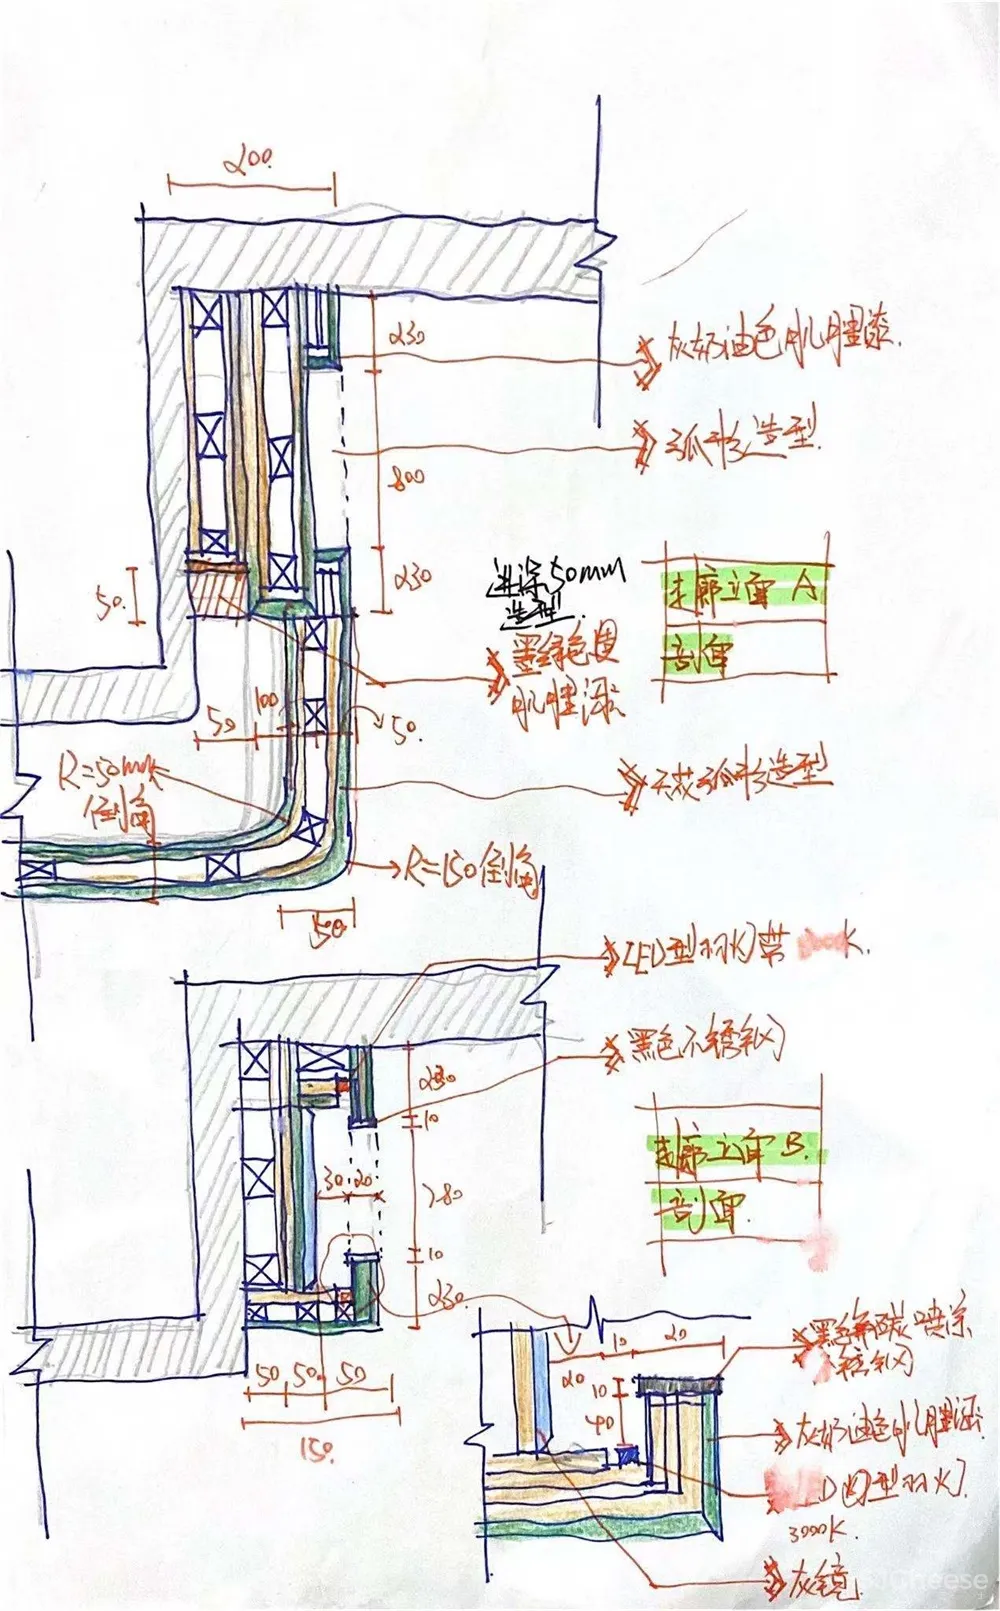 200.
230
灰奶油色肌肤漆.
弧形造型.
800
230
50.
进深50mm
造型.
墨绿色
肌肤漆
走廊立面 A
剖面
50
100
50.
R=50mm
倒角
弧形造型
R=150倒角
150
LED型材灯带
K.
黑色不锈钢
230
10
走廊立面 B.
剖面.
30
20
780
10
230.
50
50
50
150.
10
20
20
10
40
喷涂
不锈钢
灰奶油色肌肤漆.
型材灯.
3000K.
灰镜.
Cheese